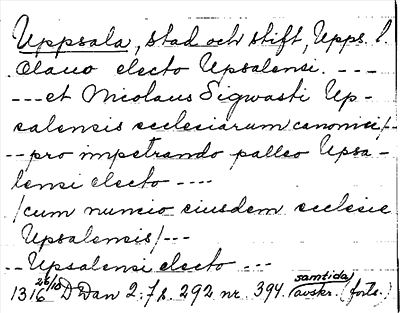 Uppsala, stad och stift, Upps. l.
Olauo electo Upsalensi. ---
---et Nicolaus Sigwasti Up-
salensis ecclesiarum canonici/--
--pro impetrando palleo Upsa-
lensi electo ----
/cum nuncio eiusdem ecclesie
Upsalensis/---
--Upsalensi electo ---
1316 26/10 D Dan 2:7 s. 292 nr. 394. (samtida avskr.) (forts.)